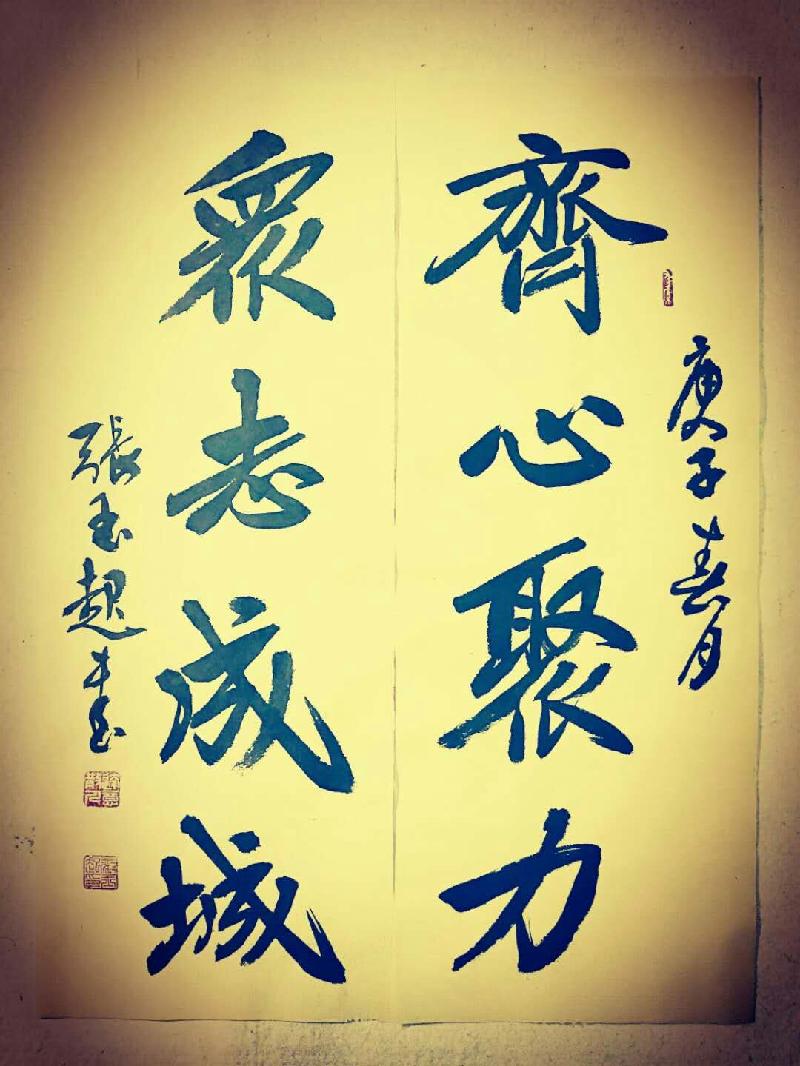 庚子春月
齊心聚力
眾志成城
張玉超書